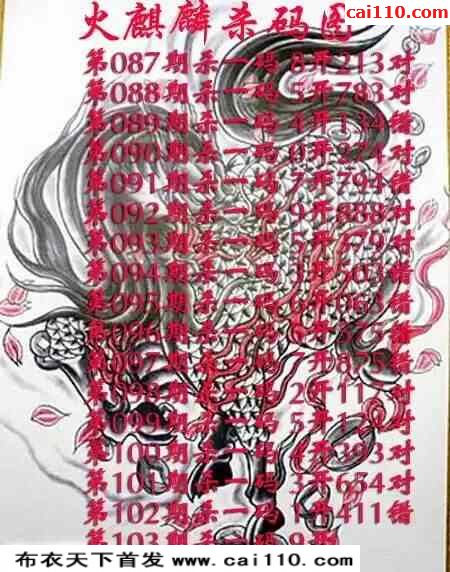 cai110.com
火麒麟杀码图
第087期杀一码8开213对
第088期杀一码5开783对
第089期杀一码4开134错
第090期杀一码0开 对
第091期杀一码7开794错
第092期杀一码9开888对
第093期杀一码5开779对
第094期杀一码3开503错
第095期杀一码6开063错
第096期杀一码 开575
第097期杀一码7开875错
第098期杀一码2开 对
第099期杀一码5开 对
第100期杀一码4开393对
第101期杀一码3开654对
第102期杀一码1开411错
第103期杀一码9开
布衣天下首发 www.cai110.com